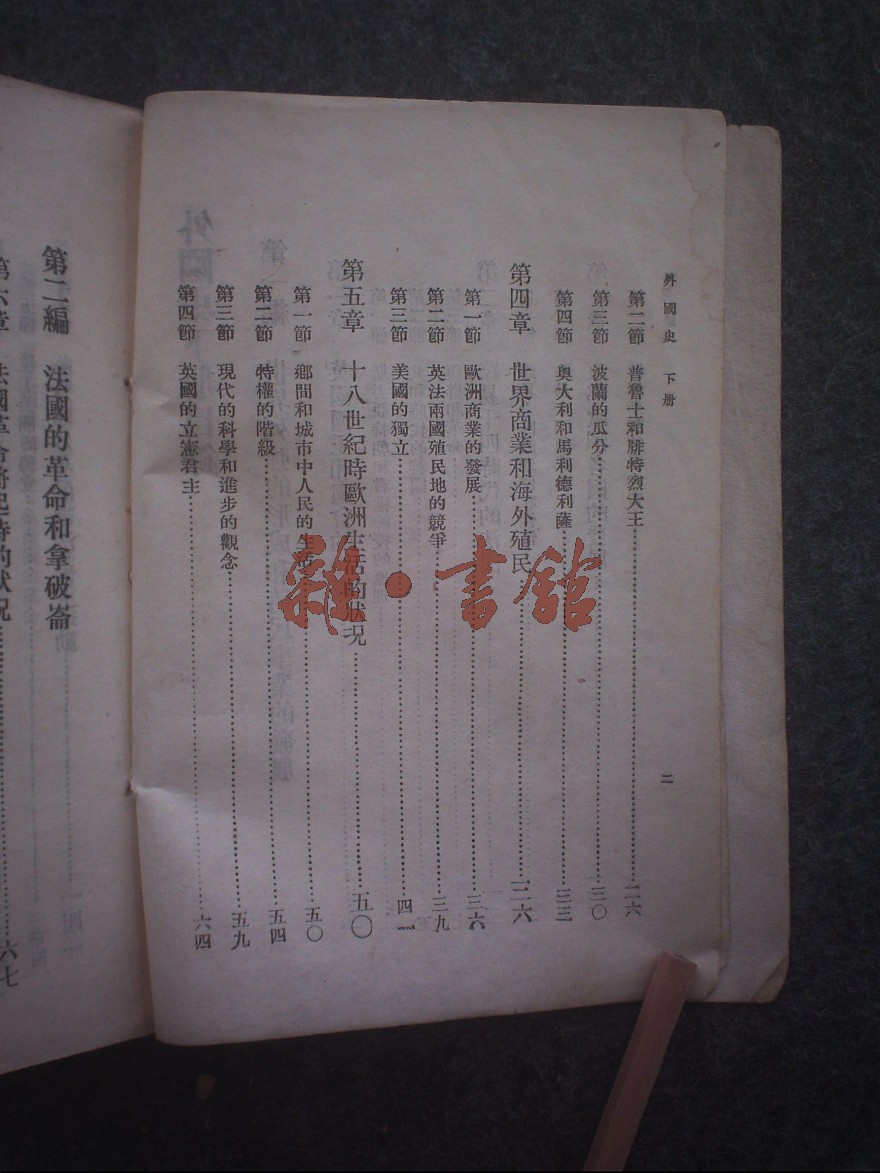 外國史 下册
二
第二節 普魯士和腓特烈大王……二六
第三節 波蘭的瓜分……三〇
第四節 奧大利和馬利德利薩……三三
第四章 世界商業和海外殖民……三六
第一節 歐洲商業的發展……三六
第二節 英法兩國殖民地的競爭……三九
第三節 美國的獨立……四
第五章 十八世紀時歐洲生活的狀況……五〇
第一節 鄉間和城市中人民的生活……五〇
第二節 特權的階級……五四
第三節 現代的科學和進步的觀念……五九
第四節 英國的立憲君主……六四
第二編 法國的革命和拿破崙
第六章 法國革命將起時的狀況……六七
雜·書館